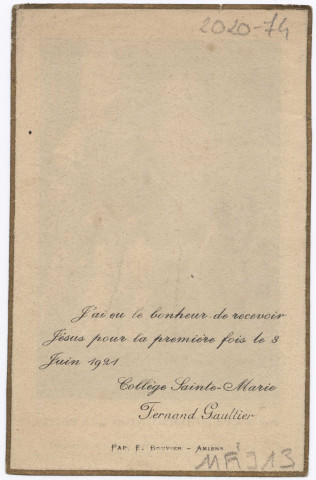 2020-74
J'ai eu le bonheur de recevoir
Jésus pour la première fois le 3
Juin 1921
Collège Sainte-Marie
Fernand Gaultier
PAP. F. BOUVIER - AMIENS